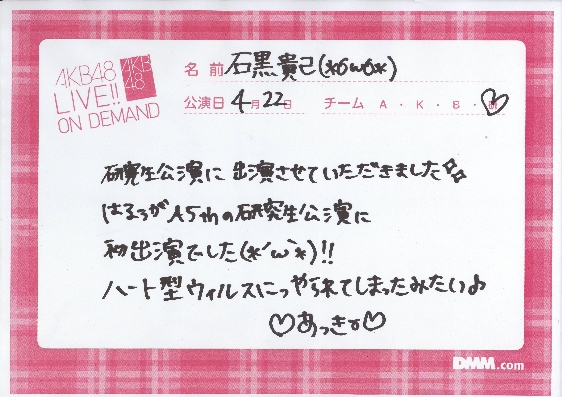 AKB48
LIVE!!
ON DEMAND
AKB
48
名前 石黒貴己(*6ω6*)
公演日 4月22日 チーム A・K・B・研
研究生公演に出演させていただきました
はるぅが A5thの研究生公演に
初出演でした(*´ω`*)!!
ハート型ウィルスにっやられてしまったみたい♪
♡あっきー♡
DMM.com